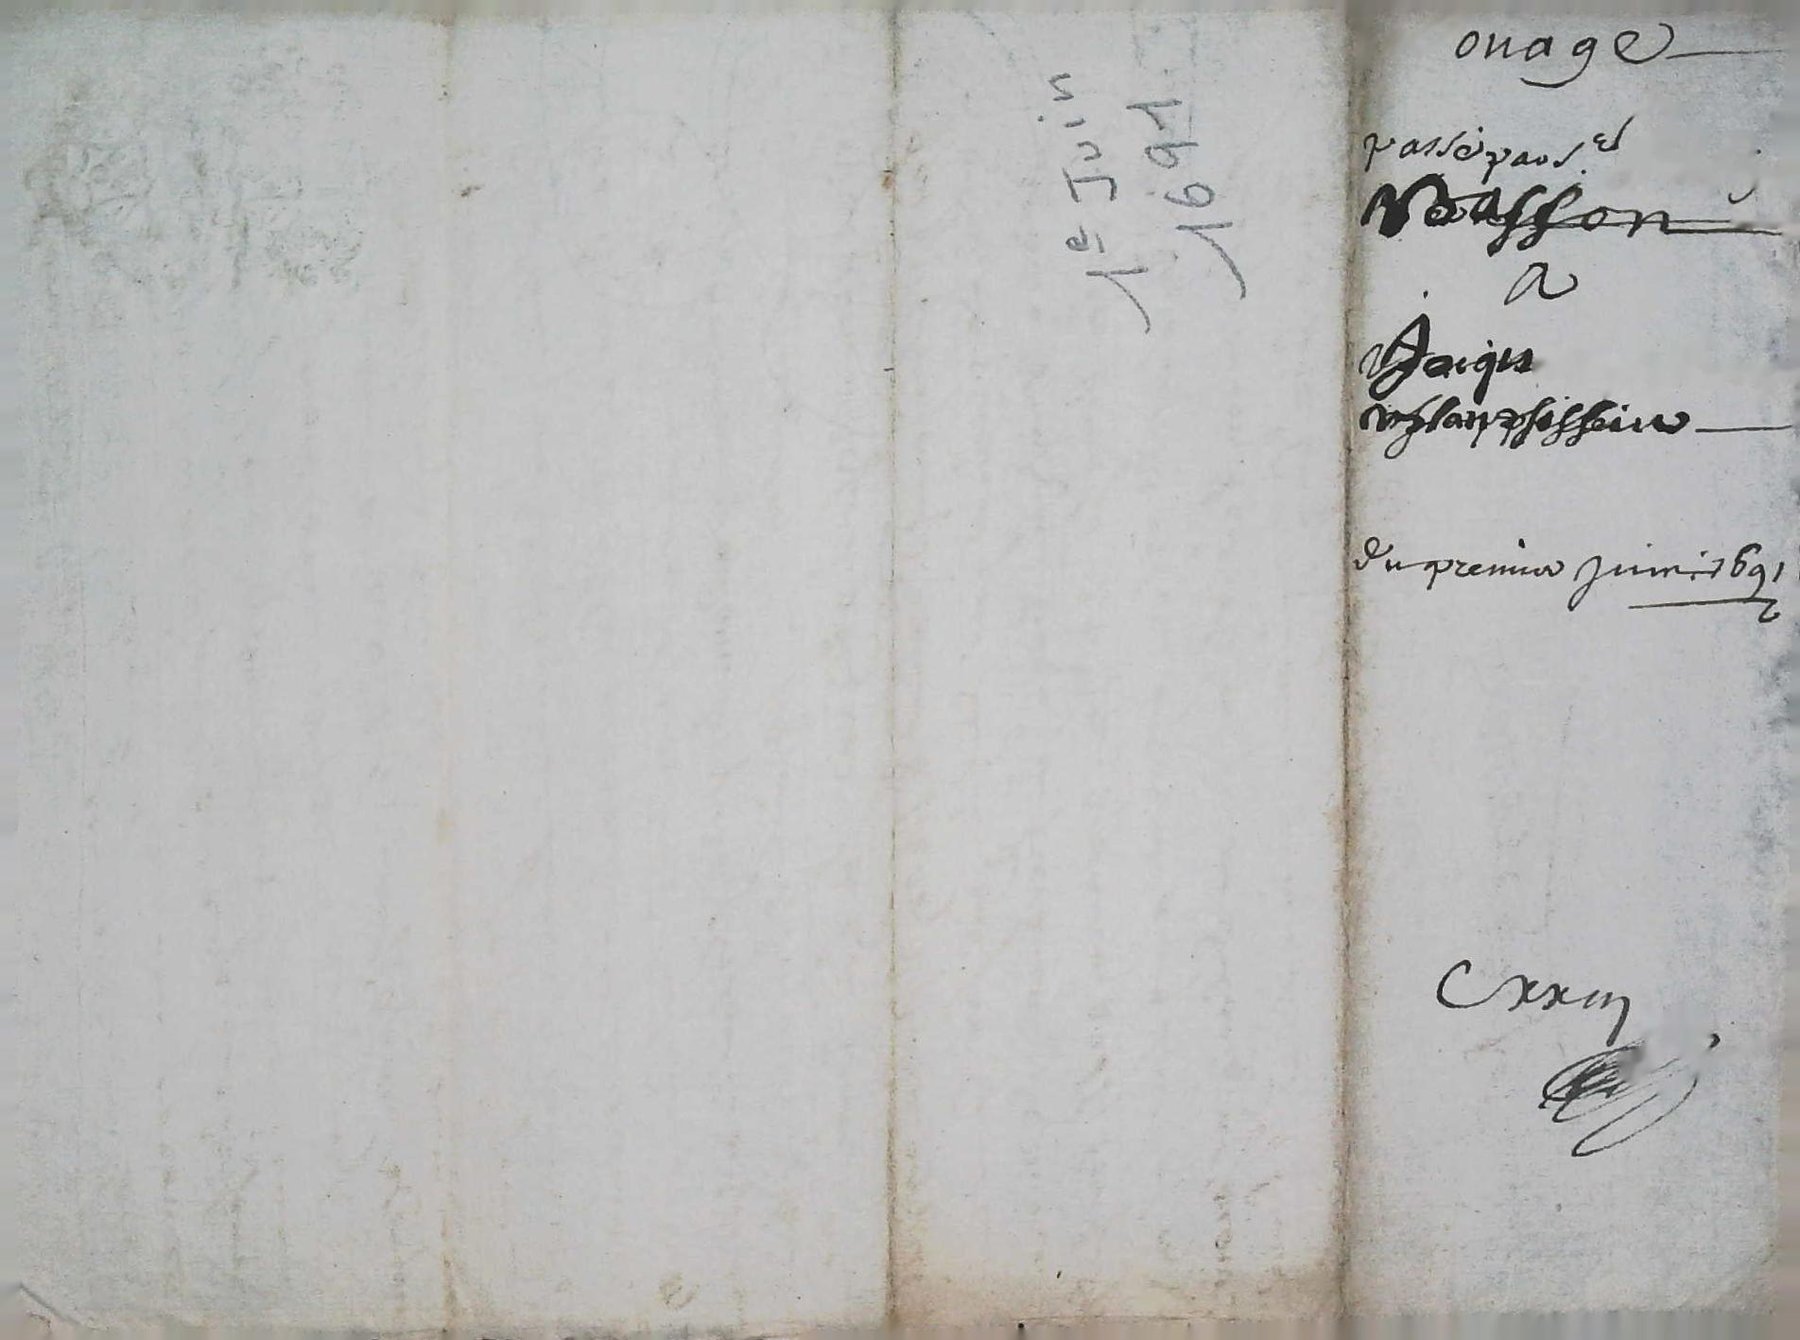 1e Juin
1691
ouage
passé par S.r
Masson
A
Jaique
du premier Juin 1691
Cxxiij